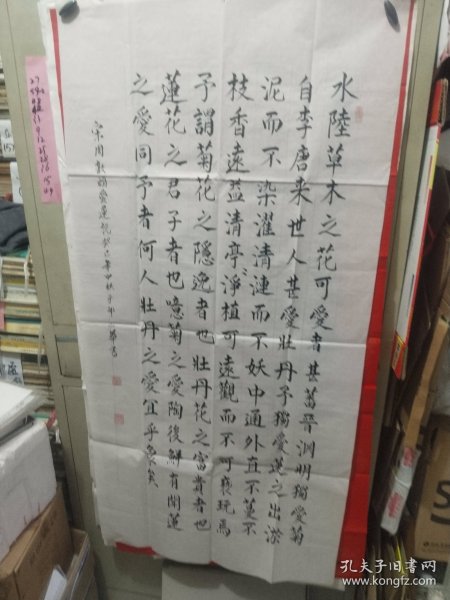 水陸草木之花可愛者甚蕃晉淵明獨愛菊
自李唐来世人甚愛牡丹予獨愛蓮之出淤
泥而不染濯清漣而不妖中通外直不蔓不
枝香遠益清亭〻淨植可遠觀而不可褻玩焉
予謂菊花之隱逸者也牡丹花之富貴者也
蓮花之君子者也噫菊之愛陶後鮮有聞蓮
之愛同予者何人牡丹之愛宜乎衆矣
宋周敦頤愛蓮說
孔夫子旧书网
www.kongfz.com